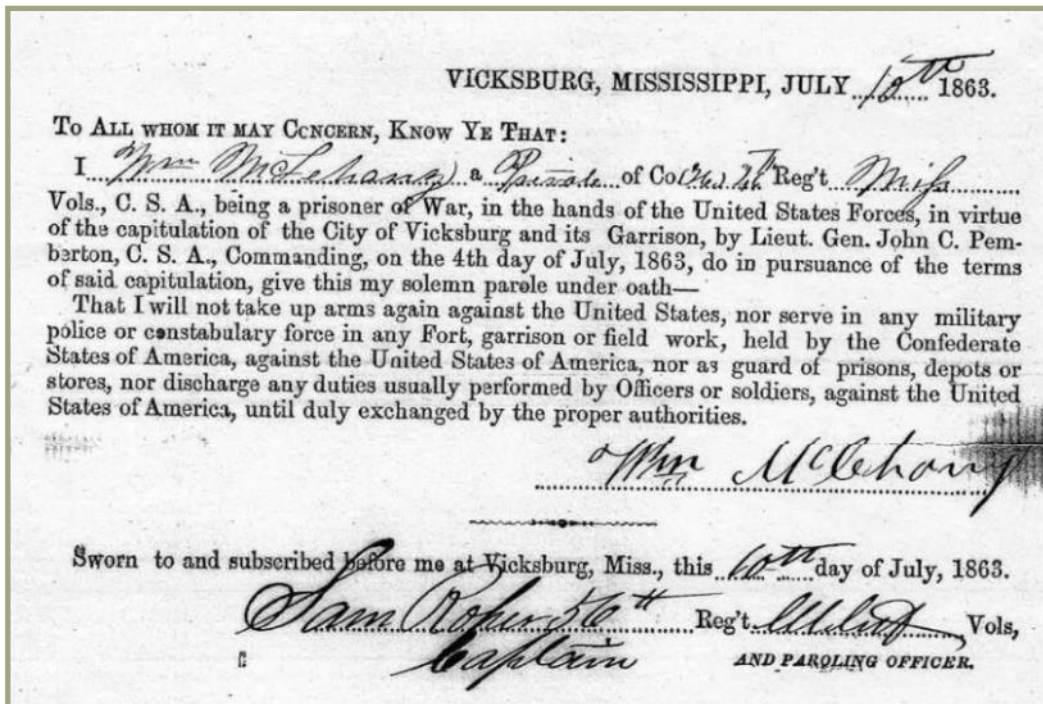 VICKSBURG, MISSISSIPPI, JULY 10th 1863.
TO ALL WHOM IT MAY CCNCERN, KNOW YE THAT:
I Wm McLehany a Private of Co Reg't Miss
Vols., C. S. A., being a prisoner of War, in the hands of the United States Forces, in virtue
of the capitulation of the City of Vicksburg and its Garrison, by Lieut. Gen. John C. Pem-
berton, C. S. A., Commanding, on the 4th day of July, 1863, do in pursuance of the terms
of said capitulation, give this my solemn parole under oath—
That I will not take up arms again against the United States, nor serve in any military
police or constabulary force in any Fort, garrison or field work, held by the Confederate
States of America, against the United States of America, nor as guard of prisons, depots or
stores, nor discharge any duties usually performed by Officers or soldiers, against the United
States of America, until duly exchanged by the proper authorities.
Wm
Sworn to and subscribed before me at Vicksburg, Miss., this 10th day of July, 1863.
Sam Roper 56th Reg't Vols,
Captain AND PAROLING OFFICER.